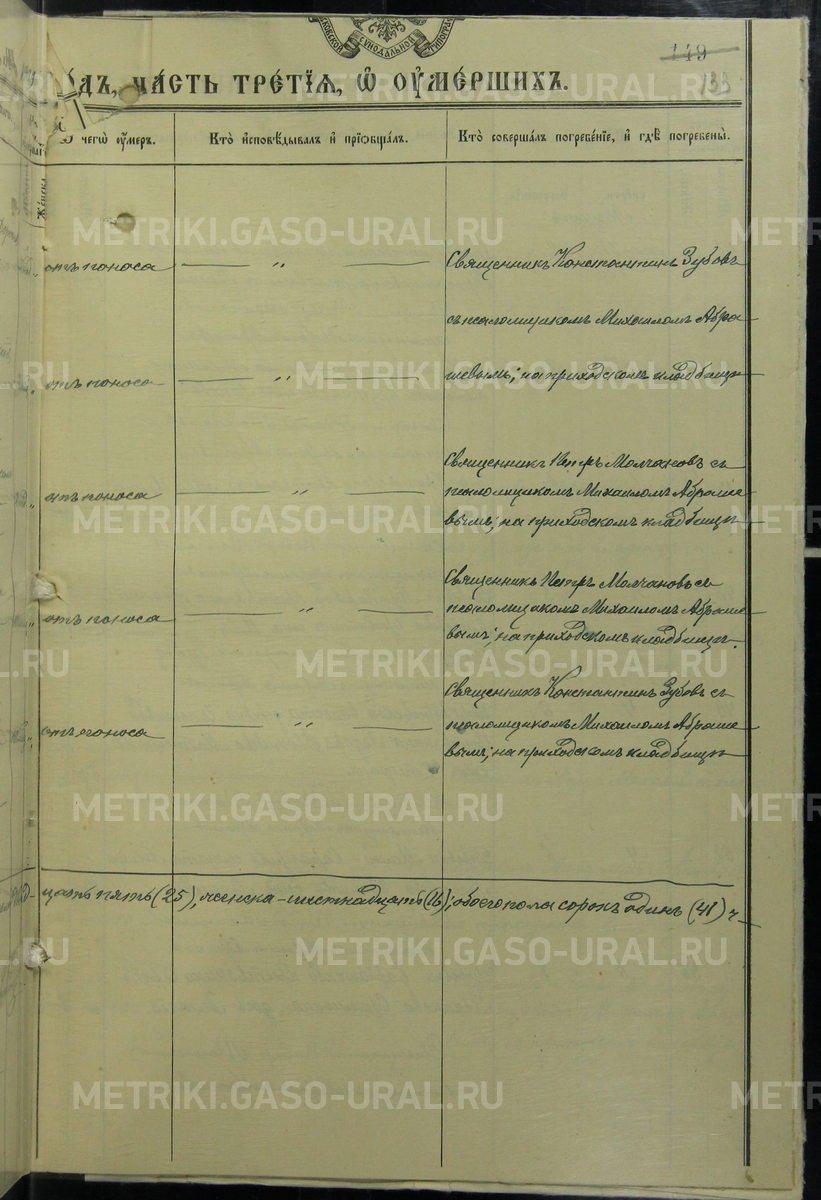 СѴНОДАЛЬНОЙ
149
133
ГОДЪ, ЧА́СТЬ ТРЕ́ТІѦ, Ѿ ОУ҆МЕ́РШИХЪ.
чегѡ̀ оу҆ме́ръ.
Кто̀ и҆сповѣ́дывалъ и҆ прїѡбща́лъ.
Кто̀ соверша́лъ погребе́нїе, и҆ гдѣ̀ погребены̀.
отъ поноса
— „ —
Священникъ Константинъ Зубовъ
съ псаломщикомъ Михаиломъ Абра
шевымъ; на приходскомъ кладбищѣ
отъ поноса
— „ —
отъ поноса
— „ —
Священникъ Петръ Молчановъ съ
псаломщикомъ Михаиломъ Абраше
вымъ; на приходскомъ кладбищѣ
отъ поноса
— „ —
Священникъ Петръ Молчановъ съ
псаломщикомъ Михаиломъ Абраше
вымъ; на приходскомъ кладбищѣ.
отъ поноса
— „ —
Священникъ Константинъ Зубовъ съ
псаломщикомъ Михаиломъ Абраше
вымъ; на приходскомъ кладбищѣ
цать пять (25), женска – шестнадцать (16); обоего пола сорокъ одинъ (41) ч
METRIKI.GASO-URAL.RU